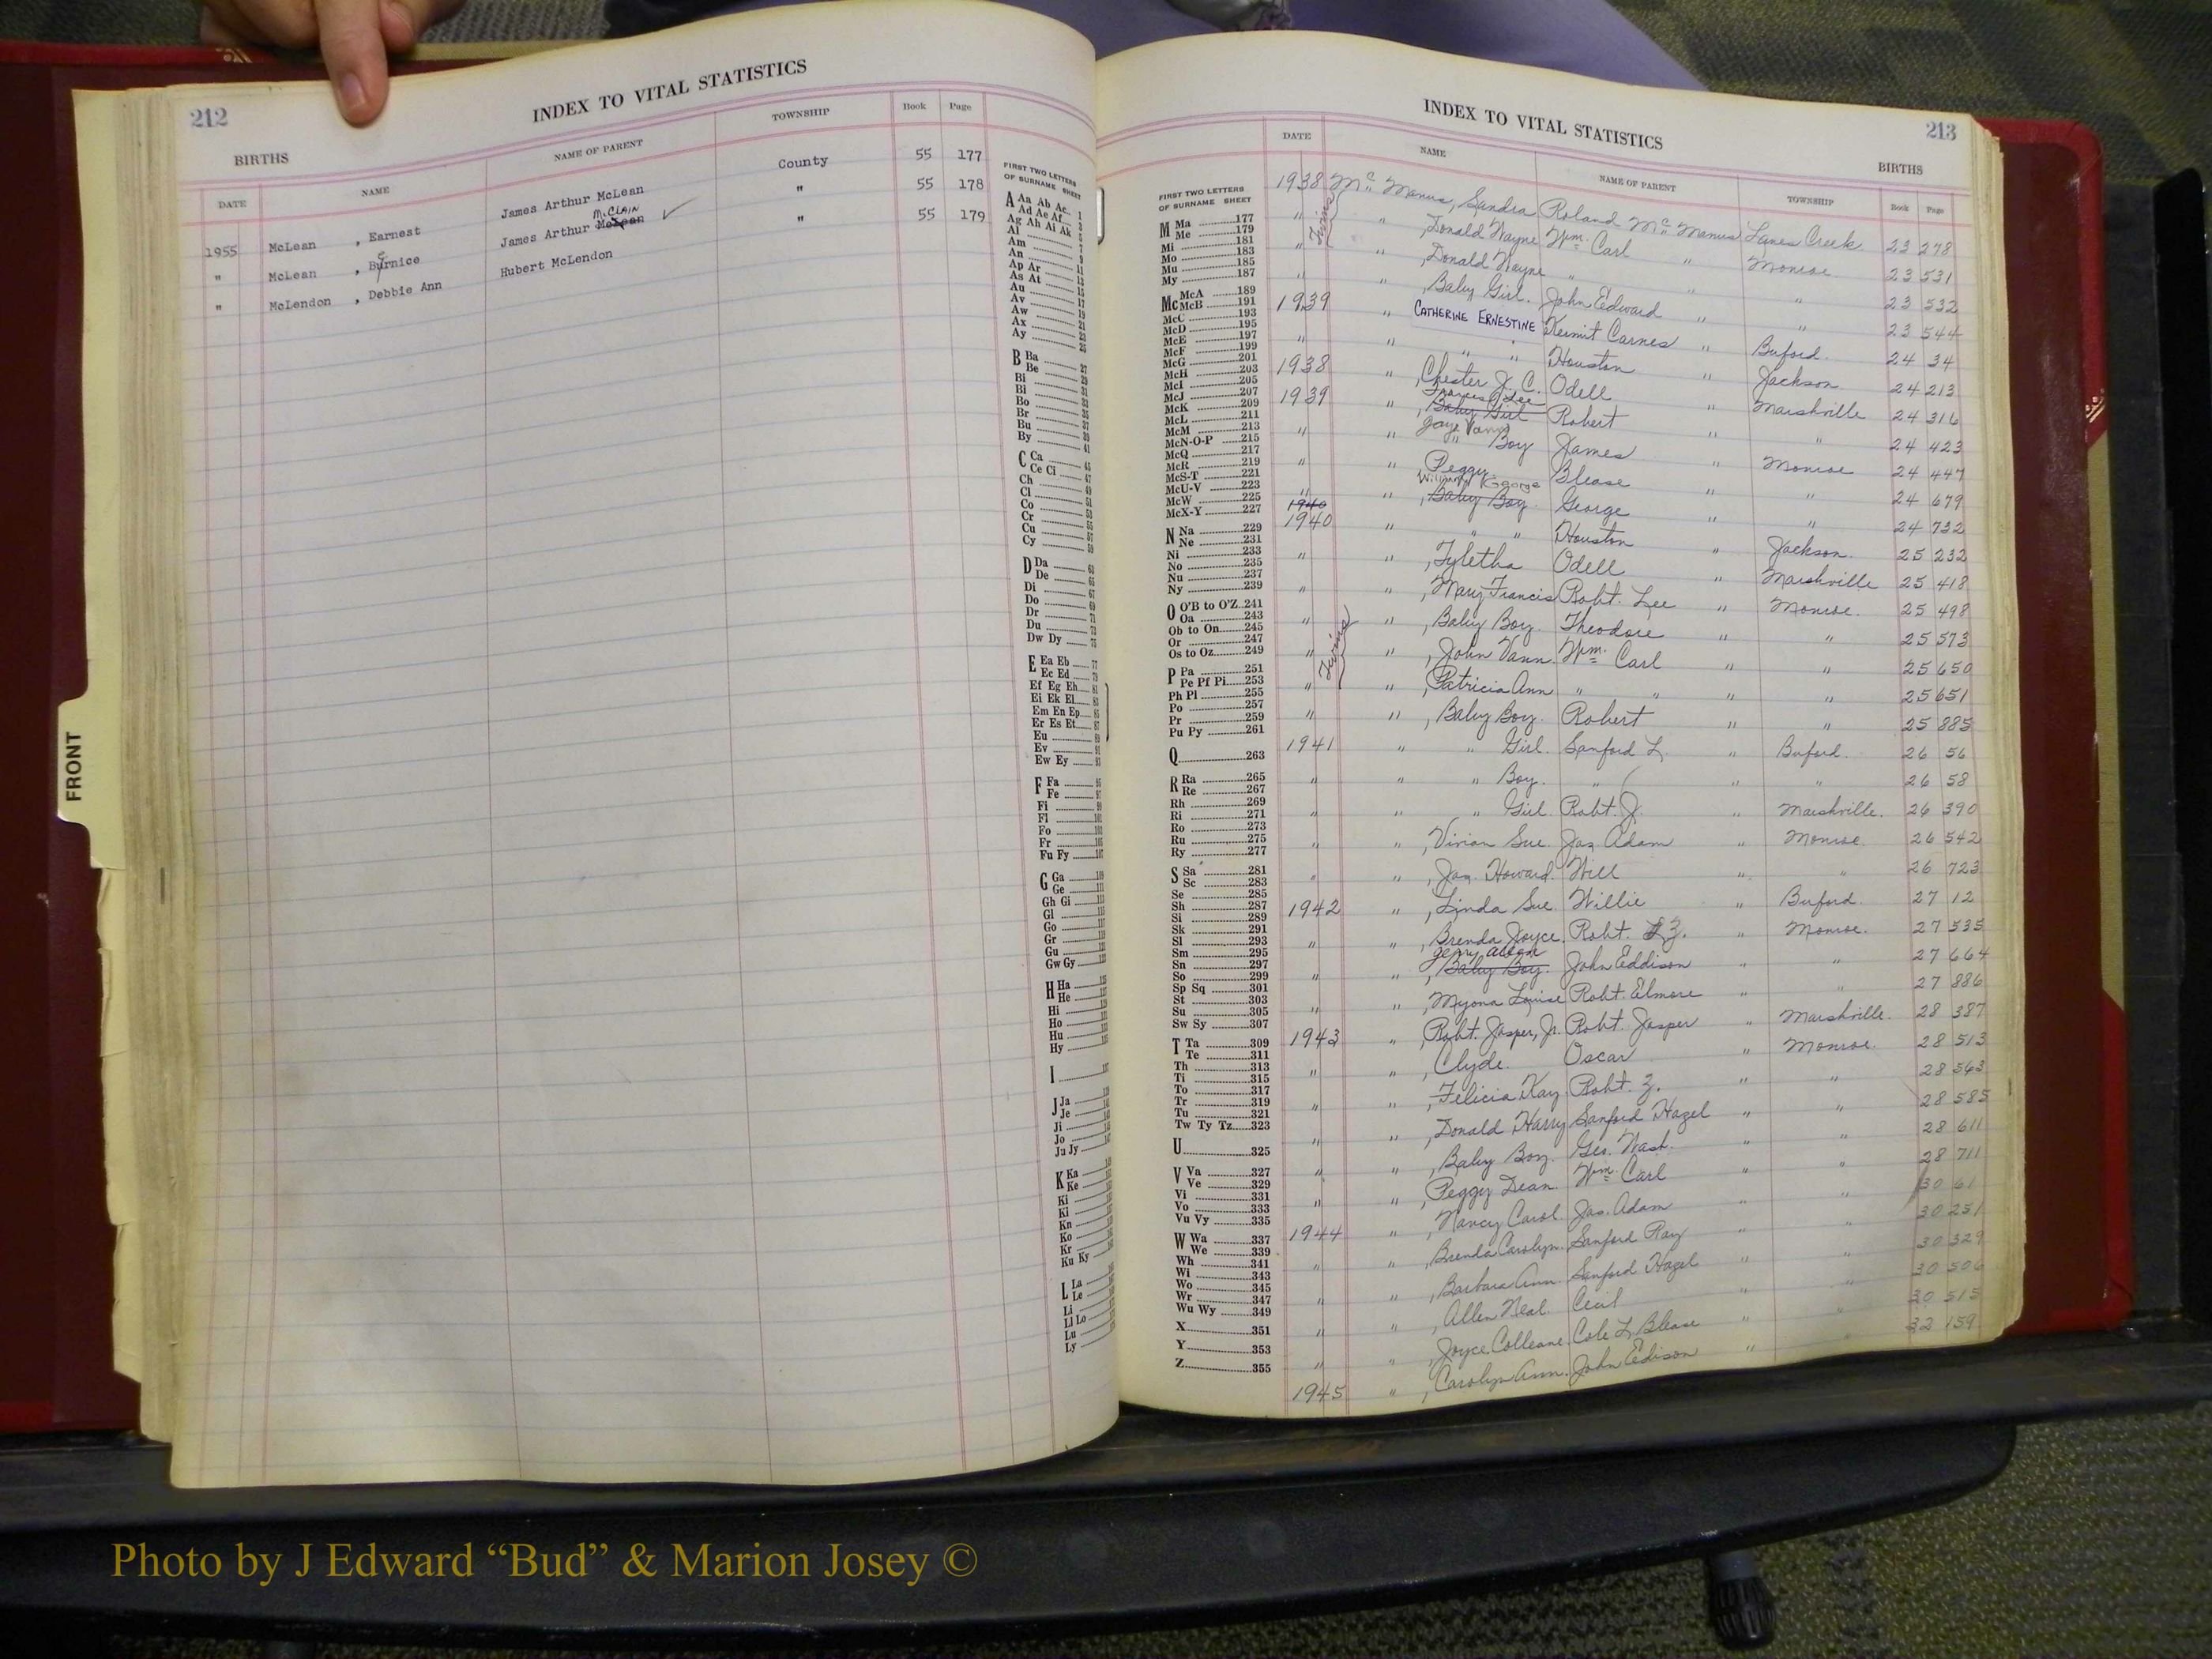 212
INDEX TO VITAL STATISTICS
BIRTHS
DATE NAME NAME OF PARENT TOWNSHIP Book Page
1955 McLean , Earnest James Arthur McLean County 55 177
" McLean , Burnice James Arthur McLean McClain " 55 178
" McLendon , Debbie Ann Hubert McLendon " 55 179
FIRST TWO LETTERS
OF SURNAME SHEET
A Aa Ab Ac
Ad Ae Af
Ag Ah Ai Ak
Al
Am
An
Ap Ar
As At
Au
Av
Aw
Ax
Ay
B Ba
Be
Bi
Bl
Bo
Br
Bu
By
C Ca
Ce Ci
Ch
Cl
Co
Cr
Cu
Cy
D Da
De
Di
Do
Dr
Du
Dw Dy
E Ea Eb
Ec Ed
Ef Eg Eh
Ei Ek El
Em En Ep
Er Es Et
Eu
Ev
Ew Ey
F Fa
Fe
Fi
Fl
Fo
Fr
Fu Fy
G Ga
Ge
Gh Gi
Gl
Go
Gr
Gu
Gw Gy
H Ha
He
Hi
Ho
Hu
Hy
I
J Ja
Je
Ji
Jo
Ju Jy
K Ka
Ke
Ki
Kn
Ko
Kr
Ku Ky
L La
Le
Li
Ll Lo
Lu
Ly
FRONT
INDEX TO VITAL STATISTICS
213
BIRTHS
FIRST TWO LETTERS
OF SURNAME SHEET
M Ma 177
Me 179
Mi 181
Mo 183
Mu 185
My 187
Mc McA 189
McB 191
McC 193
McD 195
McE 197
McF 199
McG 201
McH 203
McI 205
McJ 207
McK 209
McL 211
McM 213
McN-O-P 215
McQ 217
McR 219
McS-T 221
McU-V 223
McW 225
McX-Y 227
N Na 229
Ne 231
Ni 233
No 235
Nu 237
Ny 239
O O'B to O'Z 241
Oa 243
Ob to On 245
Or 247
Os to Oz 249
P Pa 251
Pe Pf Pi 253
Ph Pl 255
Po 257
Pr 259
Pu Py 261
Q 263
R Ra 265
Re 267
Rh 269
Ri 271
Ro 273
Ru 275
Ry 277
S Sa 281
Sc 283
Se 285
Sh 287
Si 289
Sk 291
Sl 293
Sm 295
Sn 297
So 299
Sp Sq 301
St 303
Su 305
Sw Sy 307
T Ta 309
Te 311
Th 313
Ti 315
To 317
Tr 319
Tu 321
Tw Ty Tz 323
U 325
V Va 327
Ve 329
Vi 331
Vo 333
Vu Vy 335
W Wa 337
We 339
Wh 341
Wi 343
Wo 345
Wr 347
Wu Wy 349
X 351
Y 353
Z 355
DATE NAME NAME OF PARENT TOWNSHIP Book Page
1938 McManus, Sandra Roland McManus Lanes Creek 23 278
" Twins " , Donald Wayne Wm. Carl " Monroe 23 531
" " , Donald Wayne " " " 23 532
" " , Baby Girl. John Eedward " " 23 544
1939 " CATHERINE ERNESTINE Kermit Carnes " Buford. 24 34
" " " " Houston " Jackson 24 213
1938 " , Chester J. C. Odell " Marshville 24 316
1939 " , Frances Lee Baby Girl Robert " " 24 423
" " Jaye Vann " Boy James " Monroe 24 447
" " , Peggy. Blease " " 24 679
" " William George , Baby Boy. George " " 24 732
1940 1940 " " " Houston " Jackson. 25 232
" " , Tyletha Odell " Marshville 25 418
" " , Mary Francis Robt. Lee " Monroe. 25 498
" " , Baby Boy. Theodore " " 25 573
" Twins " , John Vann. Wm. Carl " " 25 650
" " , Patricia Ann " " " " 25 651
" " , Baby Boy. Robert " " 25 885
1941 " " Girl. Sanford L. " Buford. 26 56
" " " Boy. " " " 26 58
" " " Girl. Robt. J. " Marshville. 26 390
" " , Vivian Sue. Jas. Adam " Monroe. 26 542
" " , Jas. Howard. Will " " 26 723
1942 " , Linda Sue. Willie " Buford. 27 12
" " , Brenda Joyce. Robt. Z. " Monroe. 27 535
" " Jerry , Baby Boy. John Eddison " " 27 664
" " , Myona Louise Robt. Elmore " " 27 886
1943 " , Robt. Jasper, Jr. Robt. Jasper " Marshville. 28 387
" " , Clyde. Oscar " Monroe. 28 513
" " , Felicia Kay Robt. Z. " " 28 563
" " , Donald Harry Sanford Hazel " " 28 585
" " , Baby Boy. Geo. Wash. " " 28 611
" " , Peggy Dean. Wm. Carl " " 28 711
1944 " , Nancy Carol. Jas. Adam " " 30 61
" " , Brenda Carolyn. Sanford Ray " " 30 251
" " , Barbara Ann. Sanford Hazel " " 30 329
" " , Allen Neal Cecil " " 30 506
" " , Joyce Colleane. Cole L. Blease " " 30 515
1945 " , Carolyn Ann. John Edison " " 32 159
Photo by J Edward “Bud” & Marion Josey ©